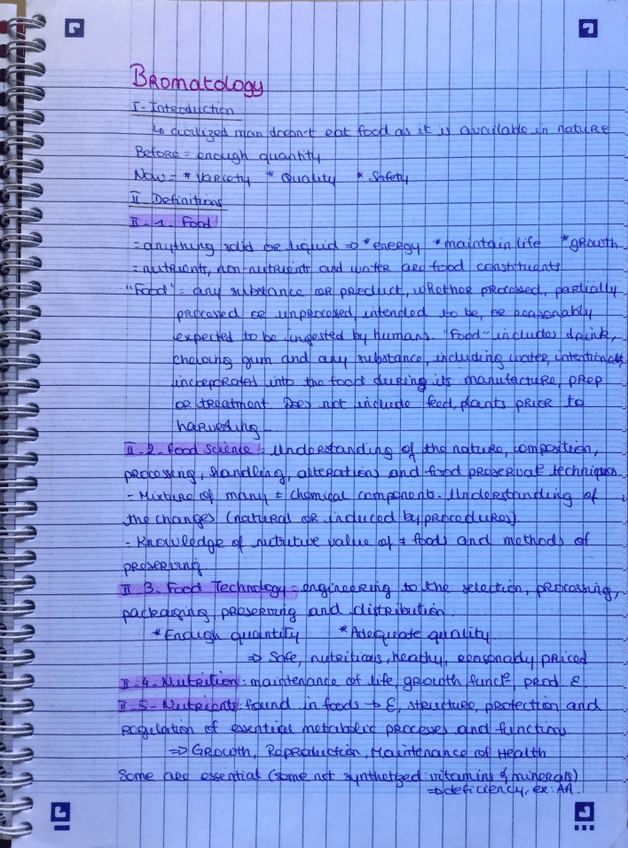 Bromatology
I- Introduction
↳ civilized man doesn't eat food as it is available in nature
Before = enough quantity
Now = * Variety * Quality * Safety
II- Definitions
II- 1. Food
= anything solid or liquid => * energy * maintain life * growth
= nutrients, non-nutrients and water are food constituents
"Food" = any substance or product, whether processed, partially
processed or unprocessed, intended to be, or reasonably
expected to be ingested by humans. "Food" includes drink,
chewing gum and any substance, including water, intentionally
incorporated into the food during its manufacture, prep
or treatment. Does not include feed, plants prior to
harvesting...
II- 2- Food Science: Understanding of the nature, composition,
processing, handling, alterations and food preserval techniques
- Mixture of many ≠ chemical components. Understanding of
the changes (natural or induced by procedures)
- Knowledge of nutritive value of ≠ foods and methods of
preserving
II. 3. Food Technology = engineering to the selection, processing,
packaging, preserving and distribution.
* Enough quantity * Adequate quality
=> Safe, nutritious, healthy, reasonably priced
II- 4- Nutrition: maintenance of life, growth funct°, prod E.
II- 5- Nutrients: found in foods → E, structure, protection and
regulation of essential metabolic processes and functions
=> Growth, Reproduction, Maintenance of Health
Some are essential (some not synthetized: vitamins & minerals)
=> deficiency, ex: AA.